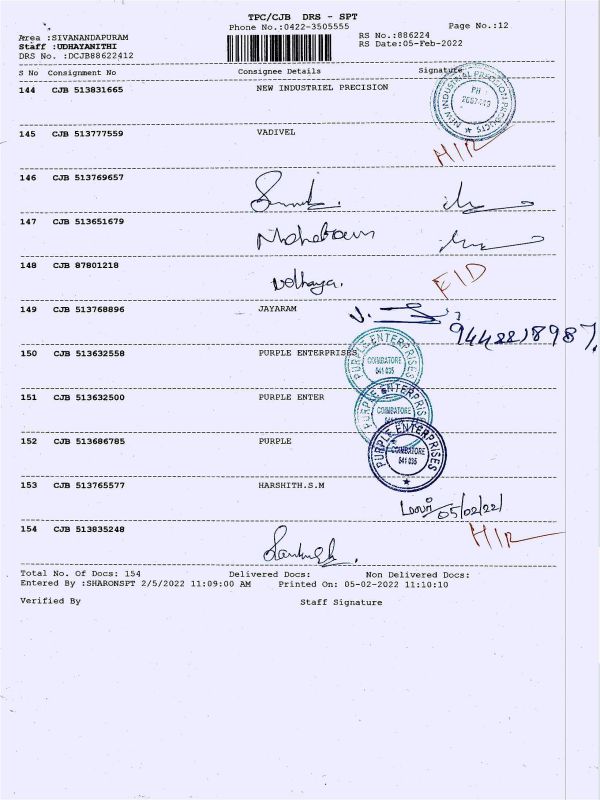 TPC/CJB DRS - SPT
Phone No.:0422-3505555 Page No.:12
Area :SIVANANDAPURAM RS No.:886224
Staff :UDHAYANITHI RS Date:05-Feb-2022
DRS No. :DCJB88622412
S No Consignment No Consignee Details Signature
144 CJB 513831665 NEW INDUSTRIEL PRECISION
NEW INDUSTRIAL PRECISION PRODUCTS
PH
145 CJB 513777559 VADIVEL
H/R
146 CJB 513769657
147 CJB 513651679
148 CJB 87801218
Udhaya.
149 CJB 513768896 JAYARAM
150 CJB 513632558 PURPLE ENTERPRISES
PURPLE ENTERPRISES
COIMBATORE
641 035
151 CJB 513632500 PURPLE ENTER
PURPLE ENTERPRISES
COIMBATORE
152 CJB 513686785 PURPLE
PURPLE ENTERPRISES
COIMBATORE
641 035
153 CJB 513765577 HARSHITH.S.M
05/02/22/
154 CJB 513835248
H/R
Total No. Of Docs: 154 Delivered Docs: Non Delivered Docs:
Entered By :SHARONSPT 2/5/2022 11:09:00 AM Printed On: 05-02-2022 11:10:10
Verified By Staff Signature